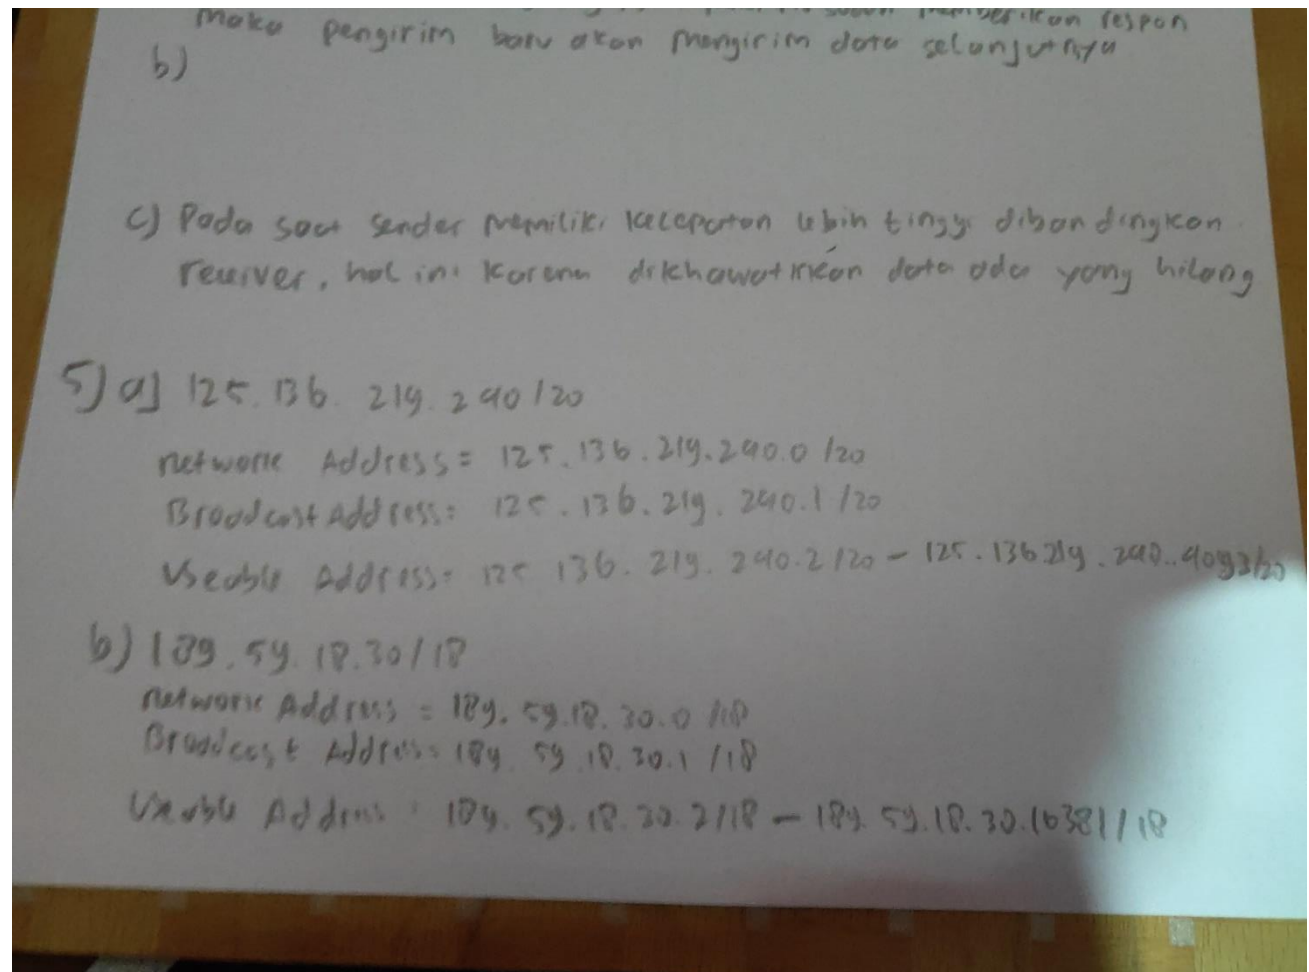 maka pengirim baru akan mengirim data selanjutnya
b)
c) Pada saat sender memiliki kecepatan lebih tinggi dibandingkan
receiver, hal ini karena dikhawatirkan data ada yang hilang
5) a) 125.136.219.240/20
Network Address = 125.136.219.240.0/20
Broadcast Address = 125.136.219.240.1/20
Useable Address = 125 136.219.240.2/20 - 125.136.219.240..4093/20
b) 189.59.18.30/18
Network Address = 189.59.18.30.0/18
Broadcast Address = 189 59.18.30.1/18
Useable Address = 189.59.18.30.2/18 - 189.59.18.30.16381/18